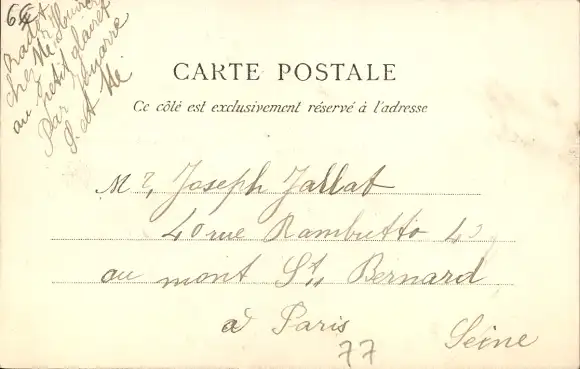 66
chez Mr
au petit
Par
S. et M
CARTE POSTALE
Ce côté est exclusivement réservé à l'adresse
Mr, Joseph Jallat
40 rue Rambutto 40
au mont St,, Bernard
a Paris
Seine
77